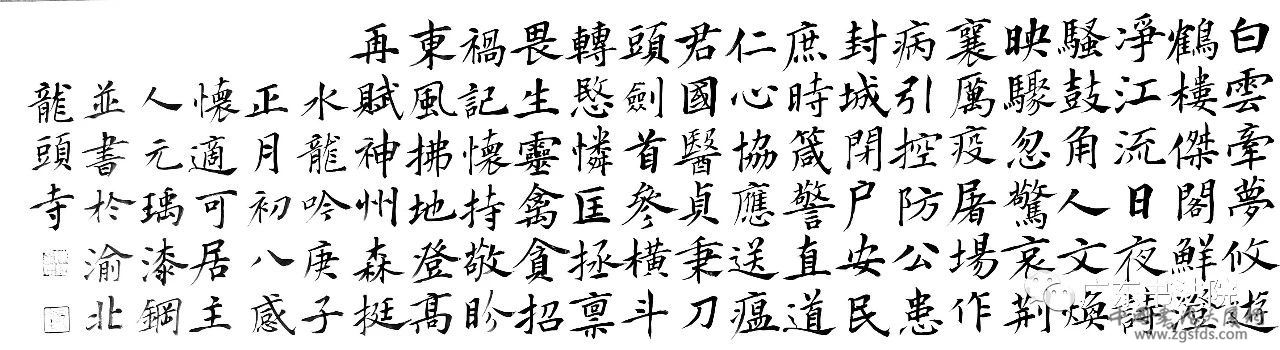 白雲牽夢攸遊
鶴樓傑閣鮮澄
淨江流日夜詩
騷鼓角人文煥
映驟忽驚哀荆
襄厲疫屠場作
病引控防公患
封城閉户安民
庶時箴警直道
仁心協應送瘟
君國醫貞秉刀
頭劍首參橫斗
轉愍憐匡拯禀
畏生靈禽貪招
禍記懷持敬昣
東風拂地登高
再賦神州森挺
水龍吟庚子
正月初八感
懷適可居主
人元瑀漆鋼
並書於渝北
龍頭寺
广东书法院
www.zgsfds.com